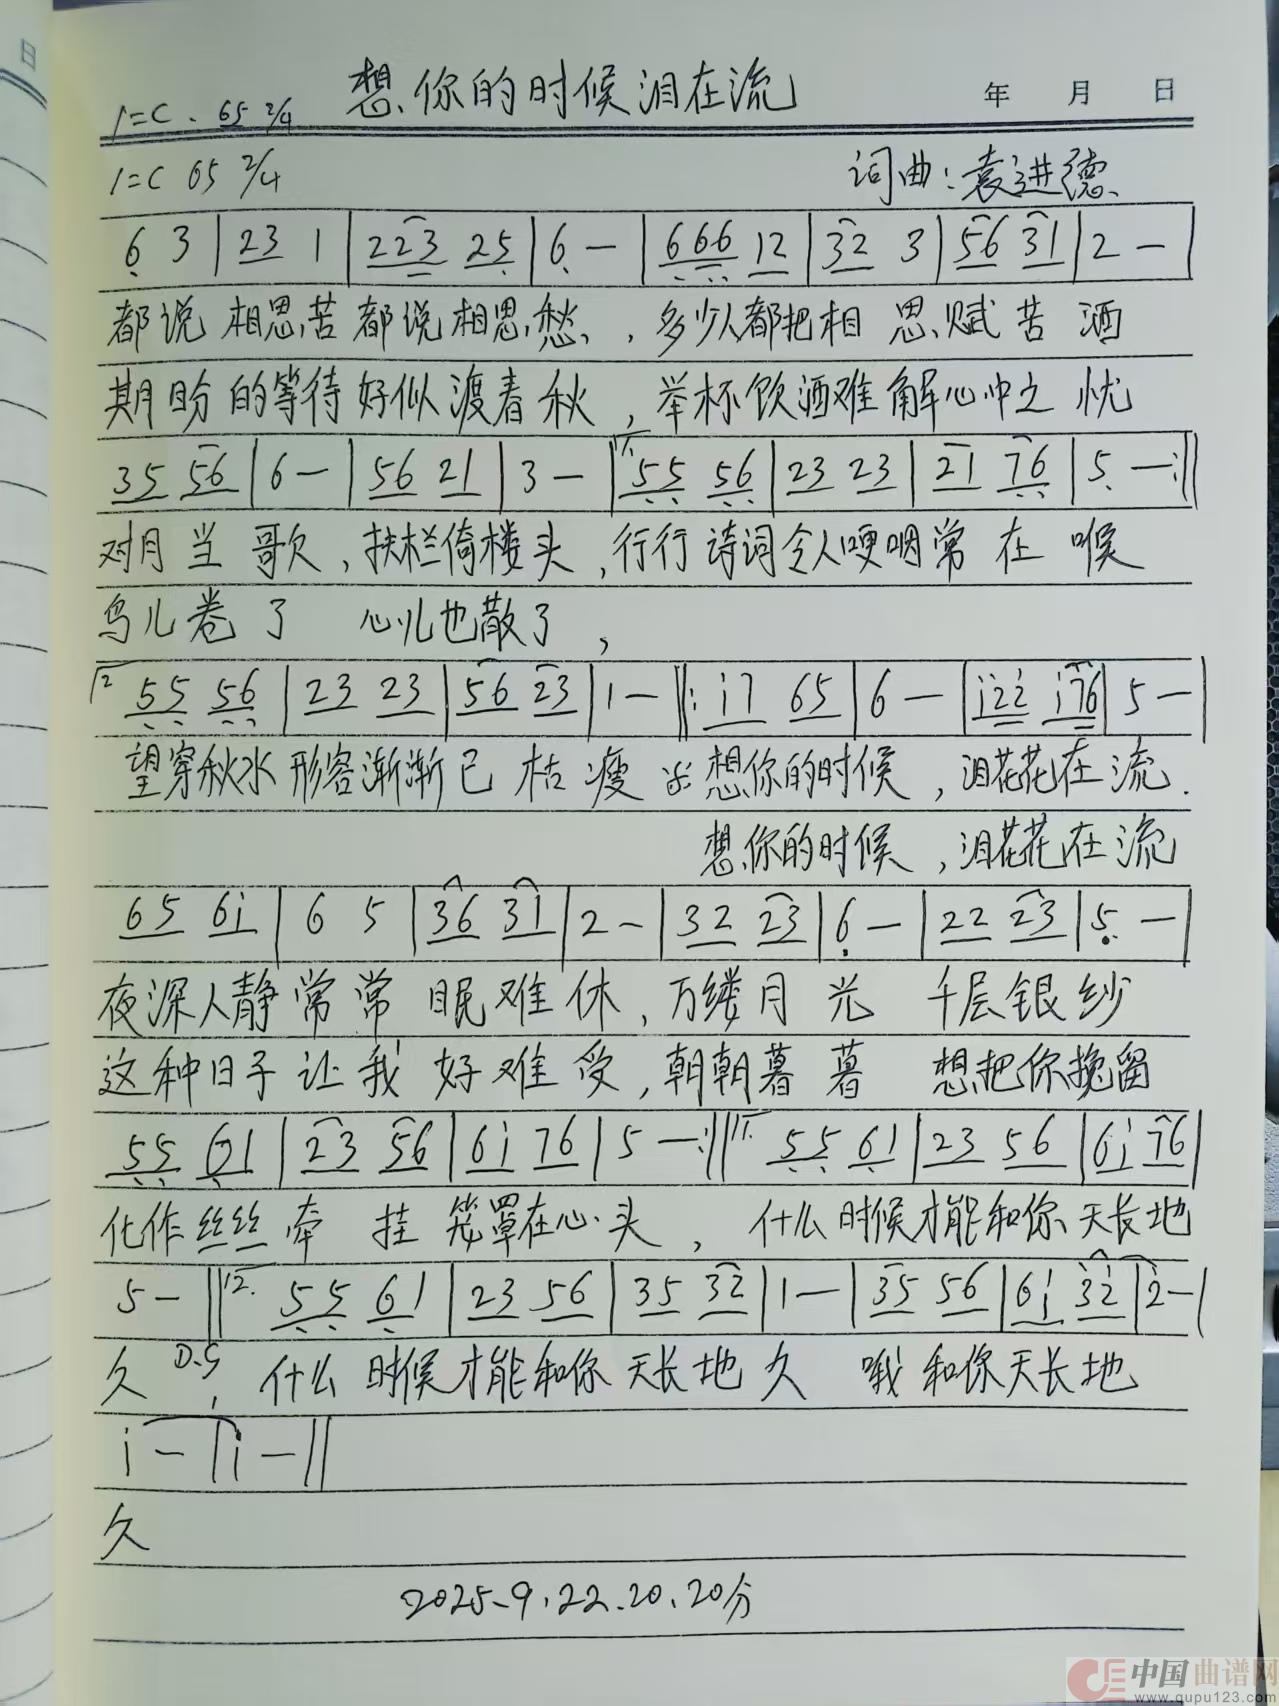 日
想你的时候泪在流
年 月 日
1=C . 65 2/4
1=C 65 2/4
词曲:袁进德
6 3 | 23 1 | 223 25 | 6 — | 666 12 | 32 3 | 56 31 | 2 — |
都说相思苦都说相思愁,多少人都把相思赋苦酒
期盼的等待好似渡春秋,举杯饮酒难解心中之忧
35 56 | 6 — | 56 21 | 3 — | 1. 55 56 | 23 23 | 21 76 | 5 — :||
对月当歌,扶栏倚楼头,行行诗词令人哽咽常在喉
鸟儿卷了 心儿也散了,
2 55 56 | 23 23 | 56 23 | 1 — ||: i7 65 | 6 — | i22 i76 | 5 — |
望穿秋水形容渐渐已枯瘦 想你的时候,泪花花在流.
想你的时候,泪花花在流
65 6i | 6 5 | 36 31 | 2 — | 32 23 | 6 — | 22 23 | 5 — |
夜深人静常常眠难休,万缕月光 千层银纱
这种日子让我好难受,朝朝暮暮 想把你挽留
55 61 | 23 56 | 6i 76 | 5 — :|| 1. 55 61 | 23 56 | 6i 76 |
化作丝丝牵挂笼罩在心头,什么时候才能和你天长地
5 — || 2. 55 61 | 23 56 | 35 32 | 1 — | 35 56 | 6i 3i | 2 — |
久 D.S,什么时候才能和你天长地久 哦和你天长地
i — | i — ||
久
2025-9.22.20.20分
中国曲谱网
www.qupu123.com